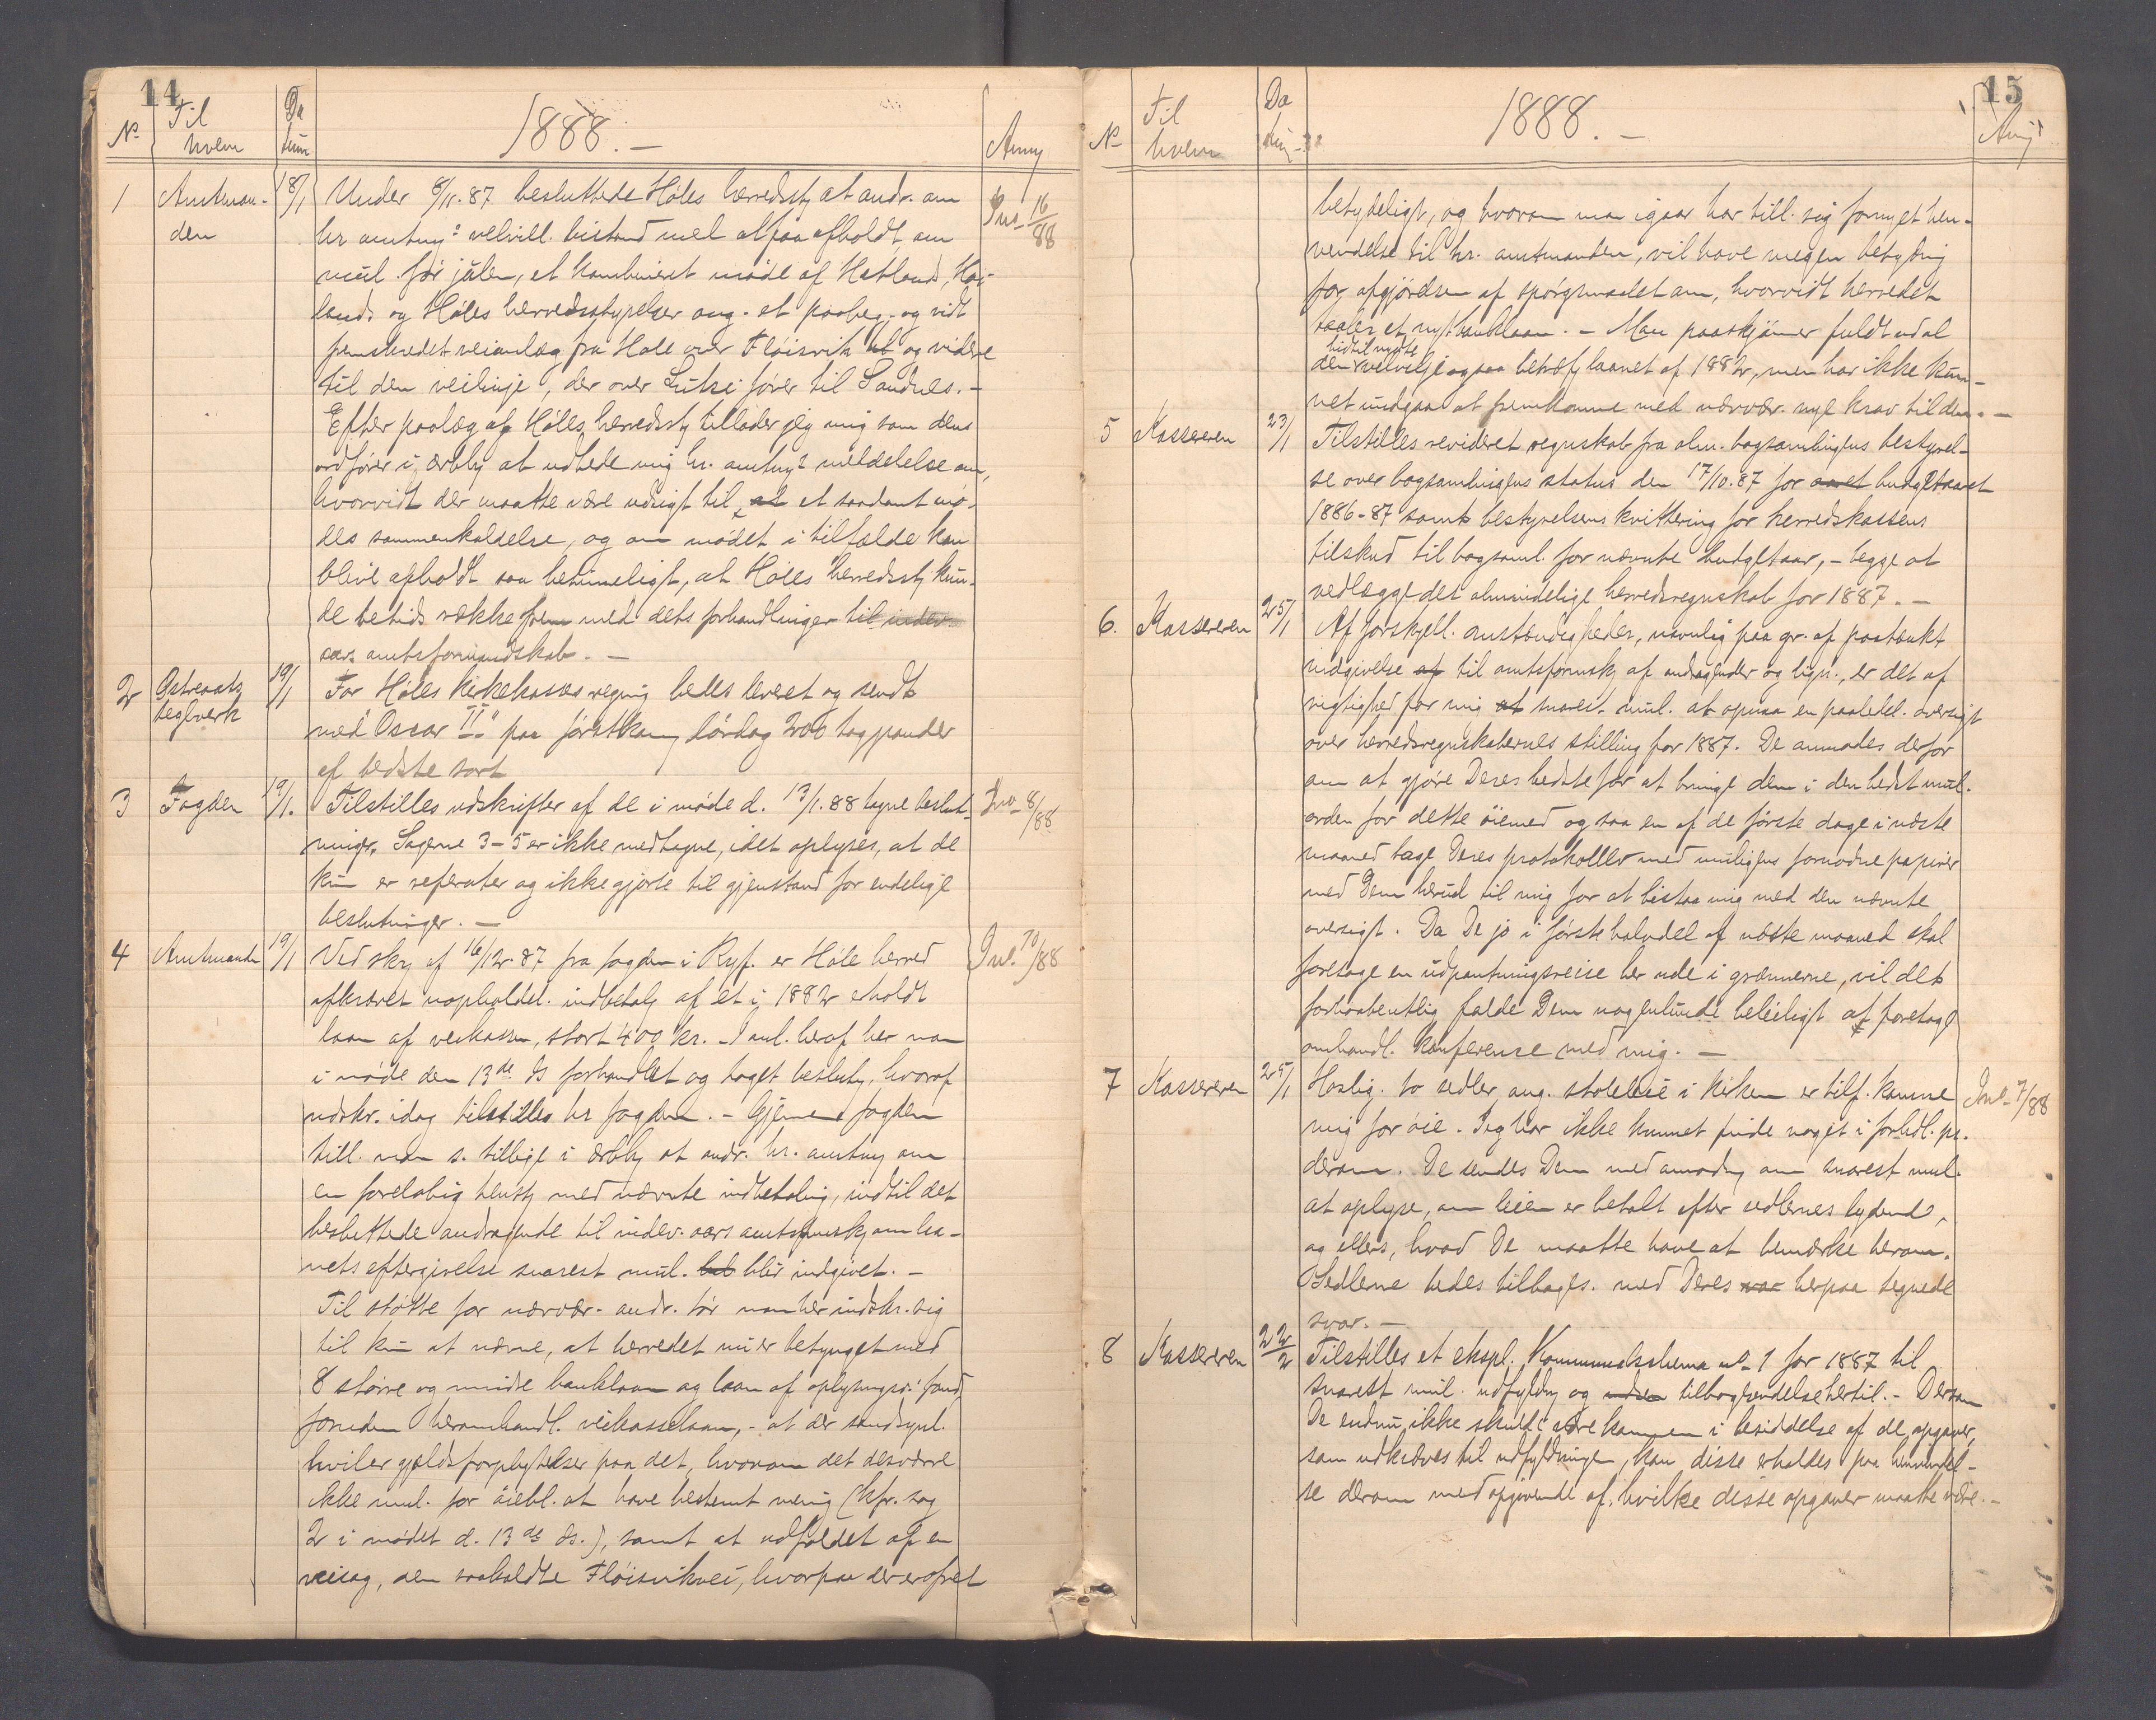 14
No Til hvem Datum 1888. — Anm
1 Amtman- 18/1 Under 8/11.87 besluttede Höles herredsst at andr. om Jno 16/88
den hr amtm.s velvill. bistand med at faa afholdt, om
mul. för julen, et kombineret möde af Hetlands, Höi-
lands og Höles herredsstyrelser ang. et paabeg. og vidt
fremskredet veianlæg fra Hole over Flöisvik ut og videre
til den veilinje, der over Lutsi förer til Sandnes. —
Efter paalæg af Höles herredsst tillader jeg mig som dens
ordförer i ærbh at udbede mig hr. amtm.s meddelelse om,
hvorvidt der maatte være udsigt til at et saadant mö-
des sammenkaldelse, og om mödet i tilfælde kan
blive afholdt saa betimeligt, at Höles herredsst kun-
de betids række frem med dets forhandlinger til indev.
aars amtsformandskab. —
2 Gstraats teglverk 19/1 For Höles kirkekasses regning bedes leveret og sendt
med "Oscar II" paa förstkom lördag 200 tagpander
af bedste sort
3 Fogden 19/1. Tilstilles udskrifter af de i möde d. 13/1.88 tagne beslut- Jno 8/88
ninger. Sagerne 3-5 er ikke medtagne, idet oplyses, at de
kun er referater og ikke gjorte til gjenstand for endelige
beslutninger. —
4 Amtmanden 19/1 Ved skr af 16/12.87 fra fogden i Ryf. er Höle herred Jno. 10/88
afkrævet uopholdel. indbetal af et i 1882 erholdt
laan af veikassen, stort 400 kr. — I anl. heraf her man
i möde den 13de ds forhandlet og taget beslutn, hvoraf
udskr. idag tilstilles hr fogden. — Gjennem fogden
till. man s. tillige i ærbh at andr. hr. amtm om
en forelöbig henst med nævnte indbetaling, indtil det
besluttede andragende til indev. aars amtsformsk om laa-
nets eftergivelse snarest mul. bl blir indgivet. —
Til stötte for nærvær. andr. tör man her indskr. sig
til kun at nævne, at herredet nu er betynget med
8 större og mindre banklaan og laan af oplysngsv. fond
foruden heromhandl. veikasselaan, — at der sandsynl.
hviler gjældsforpligtelser paa det, hvorom det desværre
ikke mul. for öiebl. at have bestemt mening (kfr. sag
2 i mödet d. 13de ds.), samt at udfaldet af en
veisag, den saakaldte Flöisvikvei, hvorpaa der er ofret
15
No Til hvem Datum 1888. — Anm
betydeligt, og hvorom man igaar har till. sig fornyet hen-
vendelse til hr. amtmanden, vil have megen betydning
for afgjörelsen af spörgsmaalet om, hvorvidt herredet
taaler et nyt banklaan. — Man paaskjönner fuldt ud al
hidtil nydte
den velvilje ogsaa beträf laanet af 1882, men har ikke kun-
net undgaa at fremkomme med nærvær. nye krav til den. —
5 Kassereren 23/1 Tilstilles revideret regnskab fra alm. bogsamlingens bestyrel-
se over bogsamlingens status den 17/10.87 for aaret budgetaaret
1886-87 samt bestyrelsens kvittering for herredskassens
tilskud til bogsaml. for nævnte budgetaar, — begge at
vedlægge det almindelige herredsregnskab for 1887. —
6. Kassereren 25/1 Af forskjell. omstændigheder, navnlig paa gr. af paatænkt
indgivelse af til amtsformsk af andragender og lign., er det af
vigtighed for mig at snarest mul. at opnaa en paalidel. oversigt
over herredsregnskabernes stilling for 1887. De anmodes derfor
om at gjöre Deres bedste for at bringe dem i den bedst mul.
orden for dette öiemed og saa en af de förste dage i næste
maaned tage Deres protokoller med muligens fornödne papirer
med Dem herud til mig for at bistaa mig med den nævnte
oversigt. Da De jo i förste halvdel af næste maaned skal
foretage en udpantningsreise her ude i grænderne, vil det
forhaabentlig falde Dem nogenlunde beleiligt at foretage
omhandl. konference med mig. —
7 Kassereren 25/1 Hoslig. to sedler ang. stoleleie i kirken er tilf. komne Jno 7/88
mig for öie. Jeg har ikke kunnet finde noget i forhdl. pr.
derom. De sendes Dem med anmodn om snarest mul.
at oplyse, om leien er betalt efter sedlernes lydend,
og ellers, hvad De maatte have at bemærke herom.
Sedlerne bedes tilbages. med Deres svar herpaa tegnede
svar. —
8 Kassereren 22/2 Tilstilles et ekspl. Kommunalskema no 1 for 1887 til
snarest mul. udfyldn og tilbagesendelse hertil. — Dersom
De endnu ikke skulde være kommen i besiddelse af de opgaver,
som udkræves til udfyldningen, kan disse erholdes paa henvendel-
se derom med opgivende af, hvilke disse opgaver maatte være. —